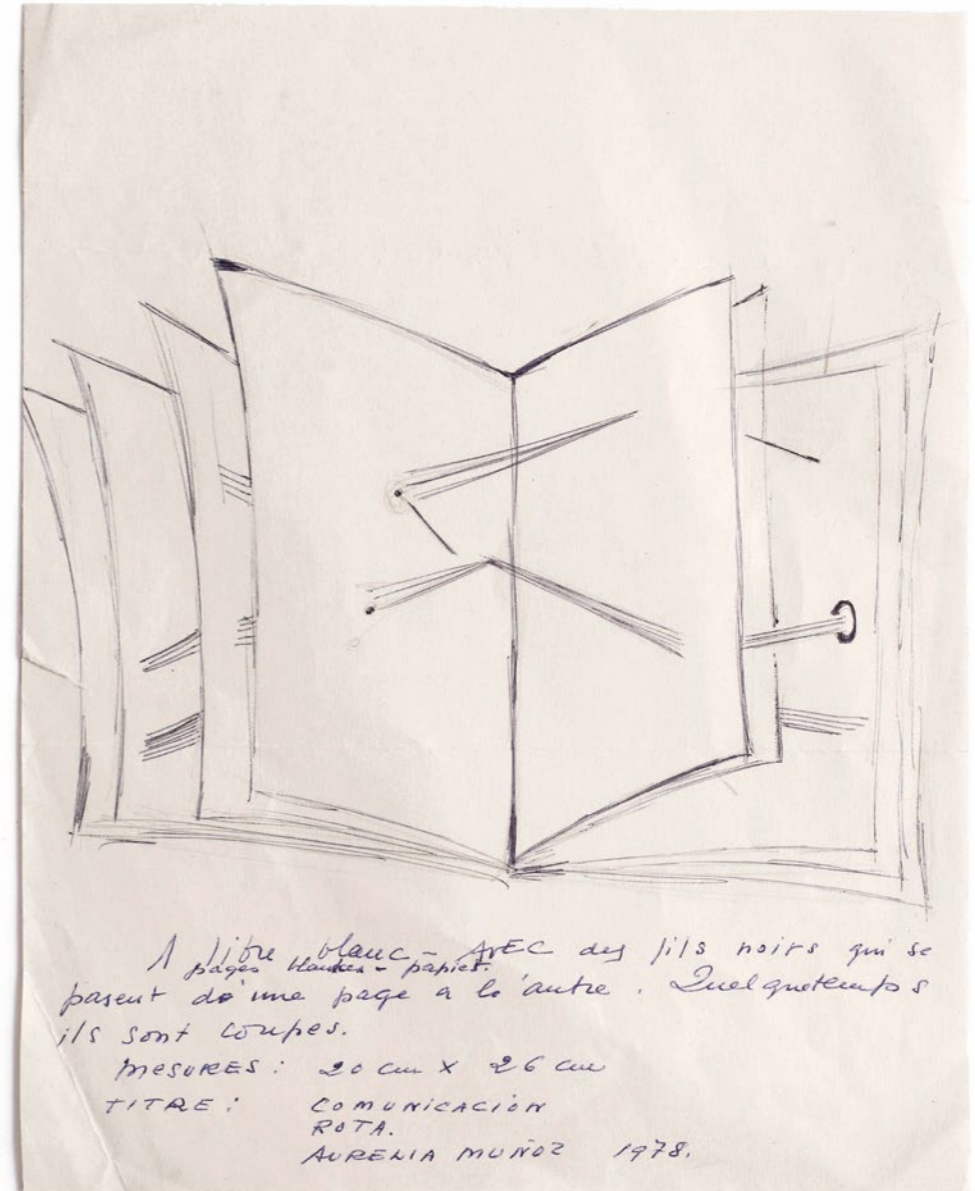 1 libre blanc - AVEC des fils noirs qui se
pages blanches - papier.
pasent de une page a lo autre. Quelquetemps
ils sont coupes.
MESURES: 20 cm X 26 cm
TITRE: COMUNICACIÓN
ROTA.
AURELIA MUÑOZ 1978.